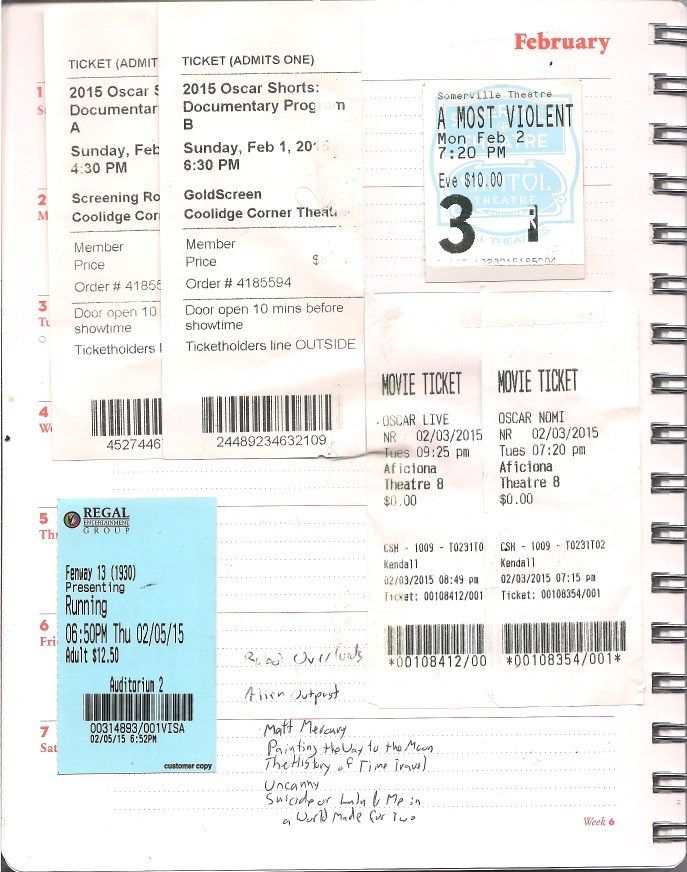 February
1
S
2
M
3
Tu
4
We
5
Thu
6
Fri
7
Sat
TICKET (ADMIT
2015 Oscar S
Documentar
A
Sunday, Feb
4:30 PM
Screening Ro
Coolidge Cor
Member
Price
Order # 4185
Door open 10
showtime
Ticketholders l
4527446
TICKET (ADMITS ONE)
2015 Oscar Shorts:
Documentary Program
B
Sunday, Feb 1, 2015
6:30 PM
GoldScreen
Coolidge Corner Theat
Member
Price $
Order # 4185594
Door open 10 mins before
showtime
Ticketholders line OUTSIDE
24489234632109
Somerville Theatre
A MOST VIOLENT
Mon Feb 2
7:20 PM
Eve $10.00
3
MOVIE TICKET
OSCAR LIVE
NR 02/03/2015
Tues 09:25 pm
Aficiona
Theatre 8
$0.00
CSH - I009 - T0231T0
Kendall
02/03/2015 08:49 pm
Ticket: 00108412/001
*00108412/00
MOVIE TICKET
OSCAR NOMI
NR 02/03/2015
Tues 07:20 pm
Aficiona
Theatre 8
$0.00
CSH - I009 - T0231T02
Kendall
02/03/2015 07:15 pm
Ticket: 00108354/001
*00108354/001*
REGAL
ENTERTAINMENT
GROUP
Fenway 13 (1930)
Presenting
Running
06:50PM Thu 02/05/15
Adult $12.50
Auditorium 2
00314893/001VISA
02/05/15 6:52PM
customer copy
Alien Outpost
Matt Mercury
Painting the Way to the Moon
The History of Time Travel
Uncanny
Suicide or Lulu & Me in
a World Made for Two
Week 6